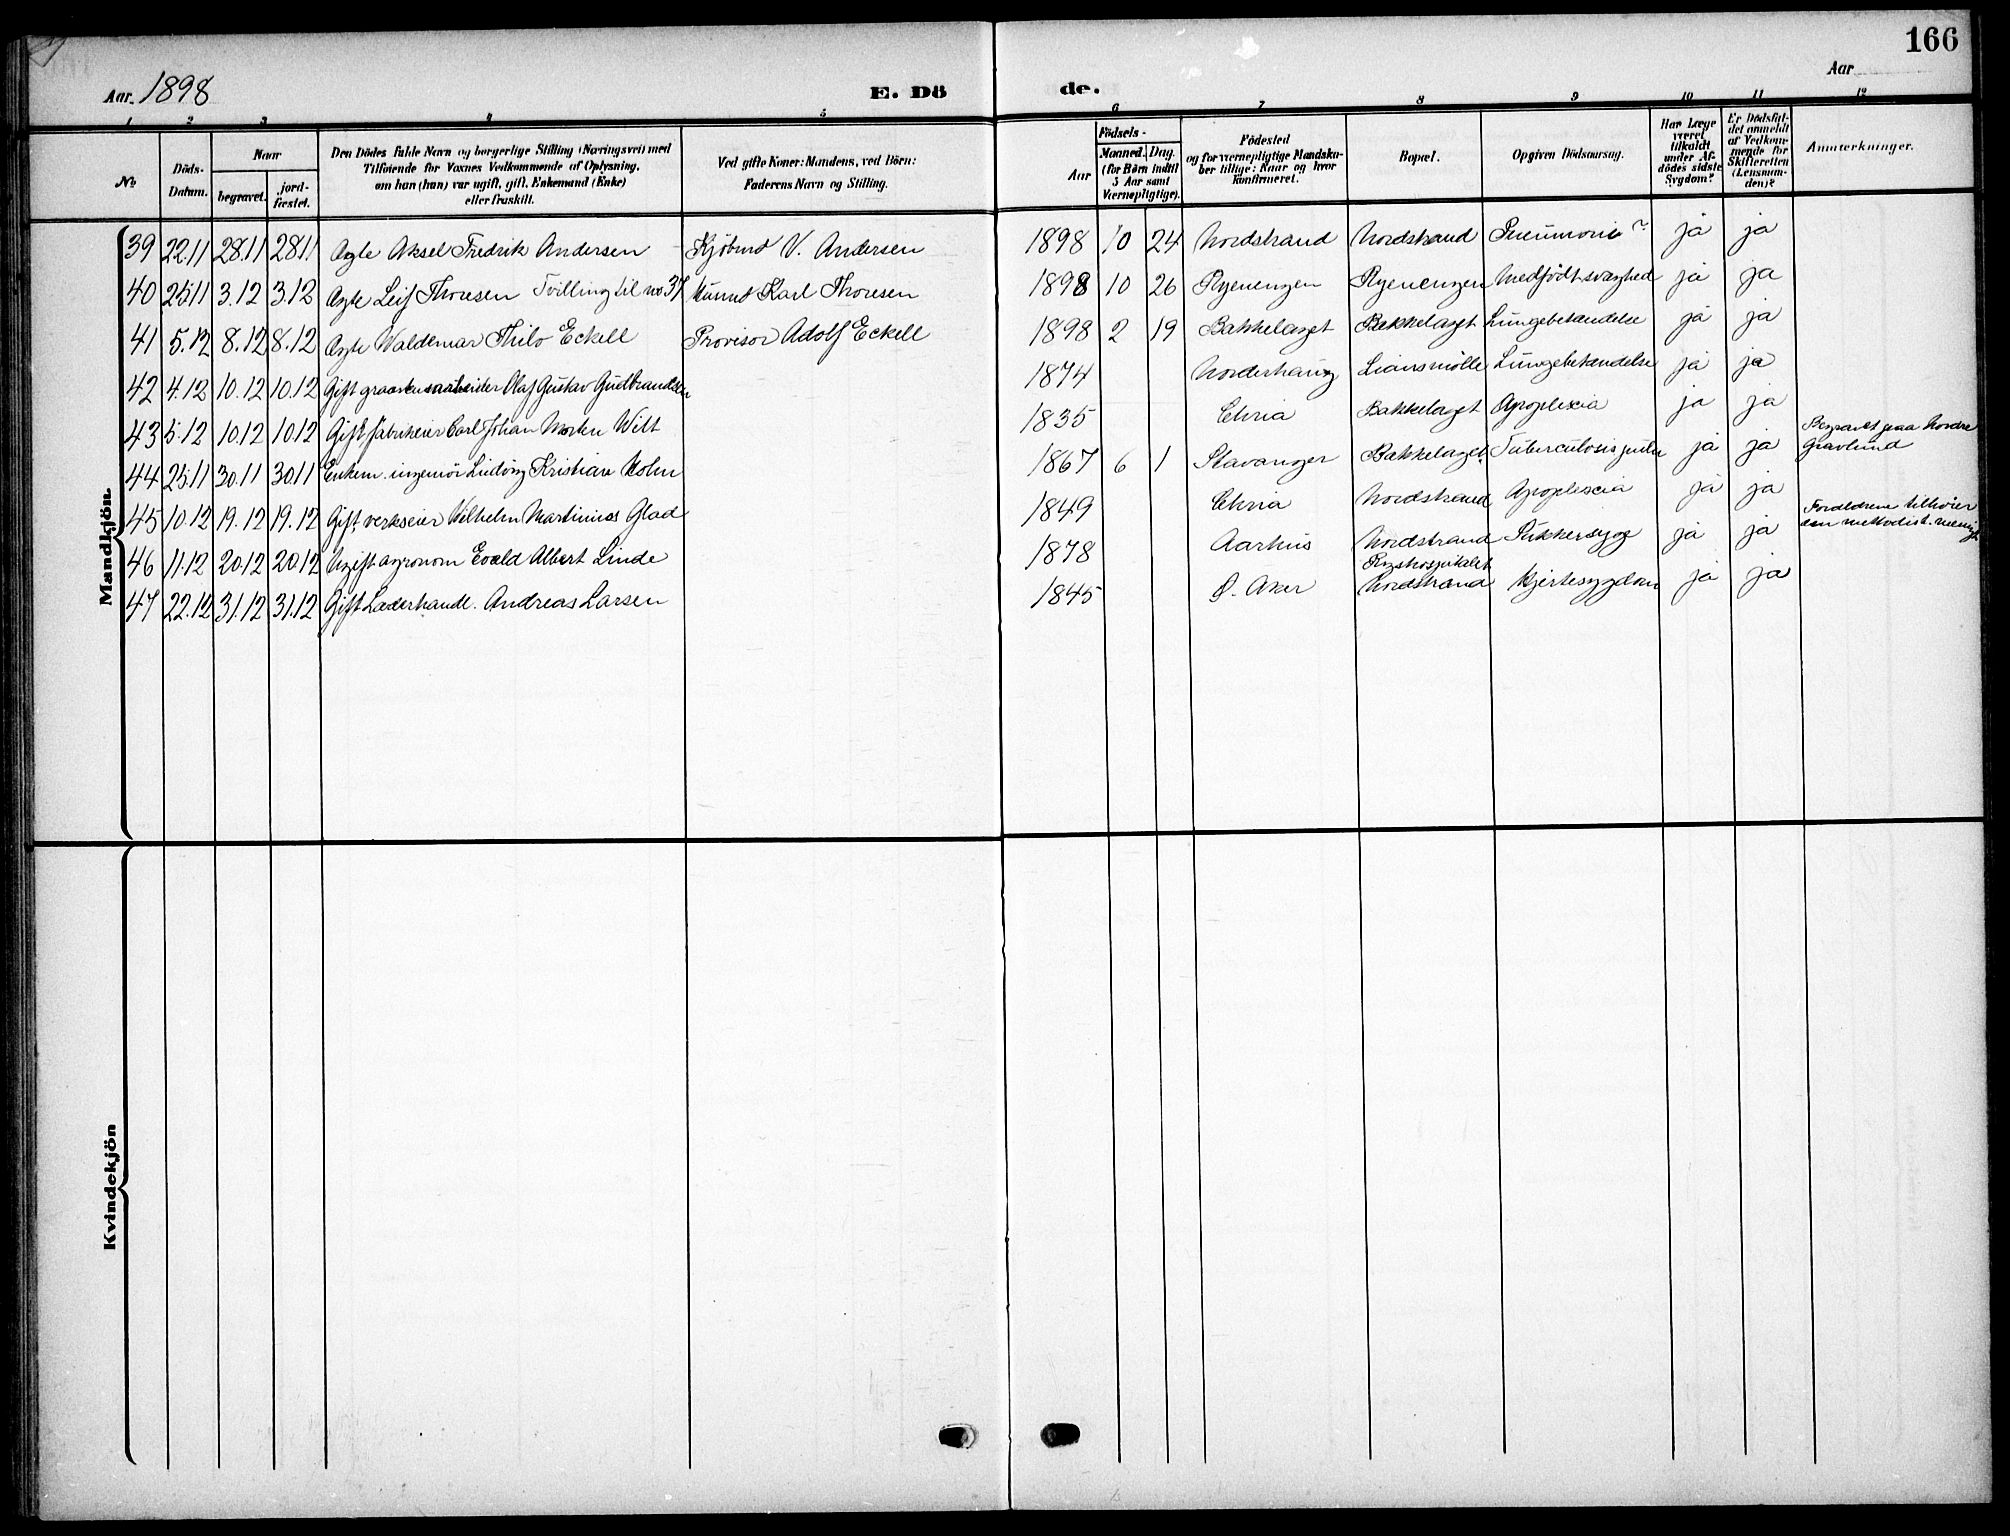 166
Aar 1898
E. Döde.
Aar
1 2 3 4 5 6 7 8 9 10 11 12
No.
Döds-Datum.
Naar
begravet.
jordfæstet.
Den Dödes fulde Navn og borgerlige Stilling (Næringsvei) med
Tilföiende for Voxnes Vedkommende af Oplysning,
om han (hun) var ugift, gift, Enkemand (Enke)
eller fraskilt.
Ved gifte Koner: Mandens, ved Börn:
Faderens Navn og Stilling.
Födsels-
Aar
Maaned. Dag.
(for Börn indtil
5 Aar samt
Værnepligtige).
Födested
og for værnepligtige Mandska-
ber tillige: Naar og hvor
konfirmeret.
Bopæl.
Opgiven Dödsaarsag.
Har Læge
været
tilkaldt
under Af-
dödes sidste
Sygdom?
Er Dödsfal-
det anmeldt
af Vedkom-
mende for
Skifteretten
(Lensman-
den)?
Anmærkninger.
Mandkjön.
39 22.11 28.11 28.11 Ægte Aksel Fredrik Andersen Kjöbmd V. Andersen 1898 10 24 Nordstrand Nordstrand Pneumoni ja ja
40 25.11 3.12 3.12 Ægte Leif Thoresen Tvilling til no 37 Karl Thoresen 1898 10 26 Ryenengen Ryenengen Medfödt svaghed ja ja
41 5.12 8.12 8.12 Ægte Waldemar Thilo Eckell Provisor Adolf Eckell 1898 2 19 Bakkelaget Bakkelaget Lungebetændelse ja ja
42 4.12 10.12 10.12 Gift Olaf Gustav Gudbrandsen 1874 Norderhaug Liansmölle Lungebetændelse ja ja
43 5.12 10.12 10.12 Gift fabrikeier Carl Johan Morten Witt 1835 Chria Bakkelaget Apoplexia ja ja
44 25.11 30.11 30.11 Enkem. ingeniör Ludvig Kristian Holm 1867 6 1 Stavanger Bakkelaget Tuberculosis ja ja Begravet paa Nordre
Gravlund
45 10.12 19.12 19.12 Gift verkseier Wilhelm Martinius Glad 1849 Chria Nordstrand Apoplexia ja ja
46 11.12 20.12 20.12 Ugift agronom Evald Albert Linde 1878 Aarhus Nordstrand Sukkersyge ja ja Forældrene tilhörer
den methodist. menigh.
47 22.12 31.12 31.12 Gift Læderhandl. Andreas Larsen 1845 Ö. Aker Nordstrand Hjertesygdom ja ja
Kvindekjön